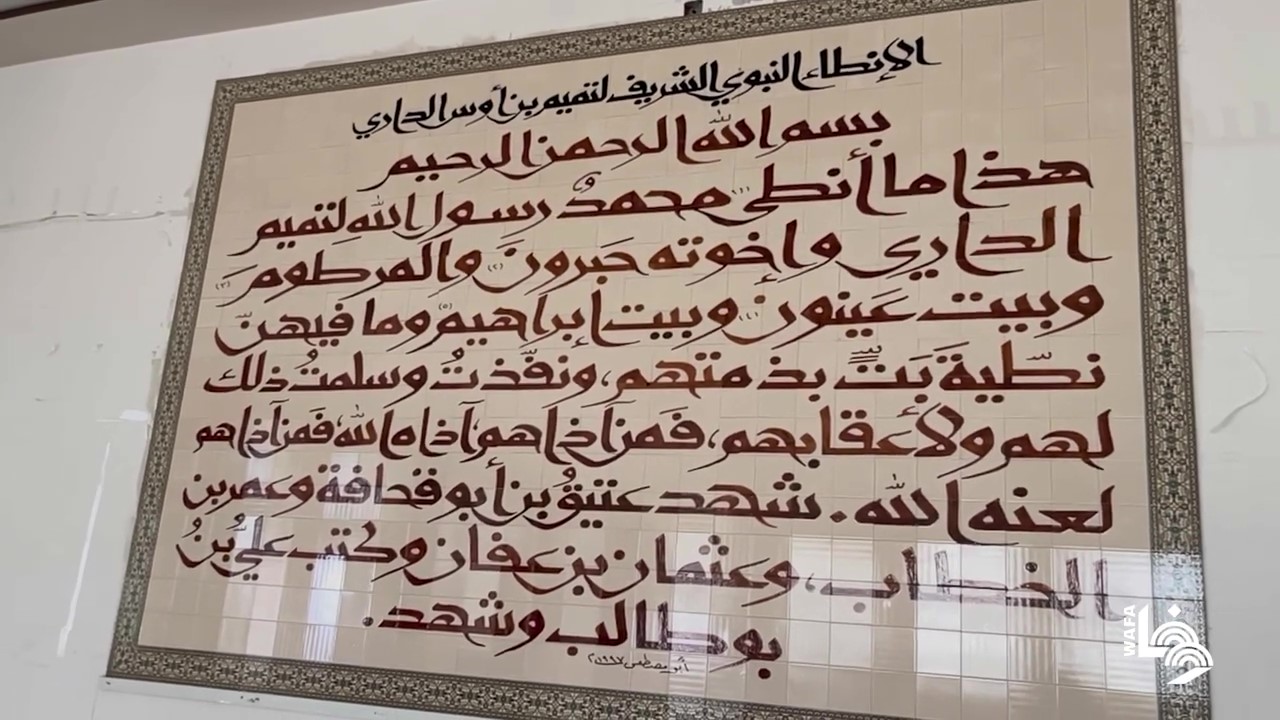 الإنطاء النبوي الشريف لتميم بن أوس الداري
بسم الله الرحمن الرحيم
هذا ما أنطى محمدٌ رسول الله لتميم
الداري وإخوته حَبرونَ (٢) والمرطومَ (٣)
وبيت عَينونَ وبيت إبراهيمَ (٥) وما فيهنّ
نطّيةَ بَتٍّ بذمتهم، ونفّذتُ وسلمتُ ذلك
لهم ولأعقابهم، فَمن آذاهم آذاه الله، فَمن آذاهم
لعنه الله. شهد عتيقُ بن أبو قحافة وعمر بن
الخطاب، وعثمان بن عفان وكتب عليُّ بنُ
بو طالب وشهد.
أبو مصطفى ١٩٩٧
WAFA
وفا